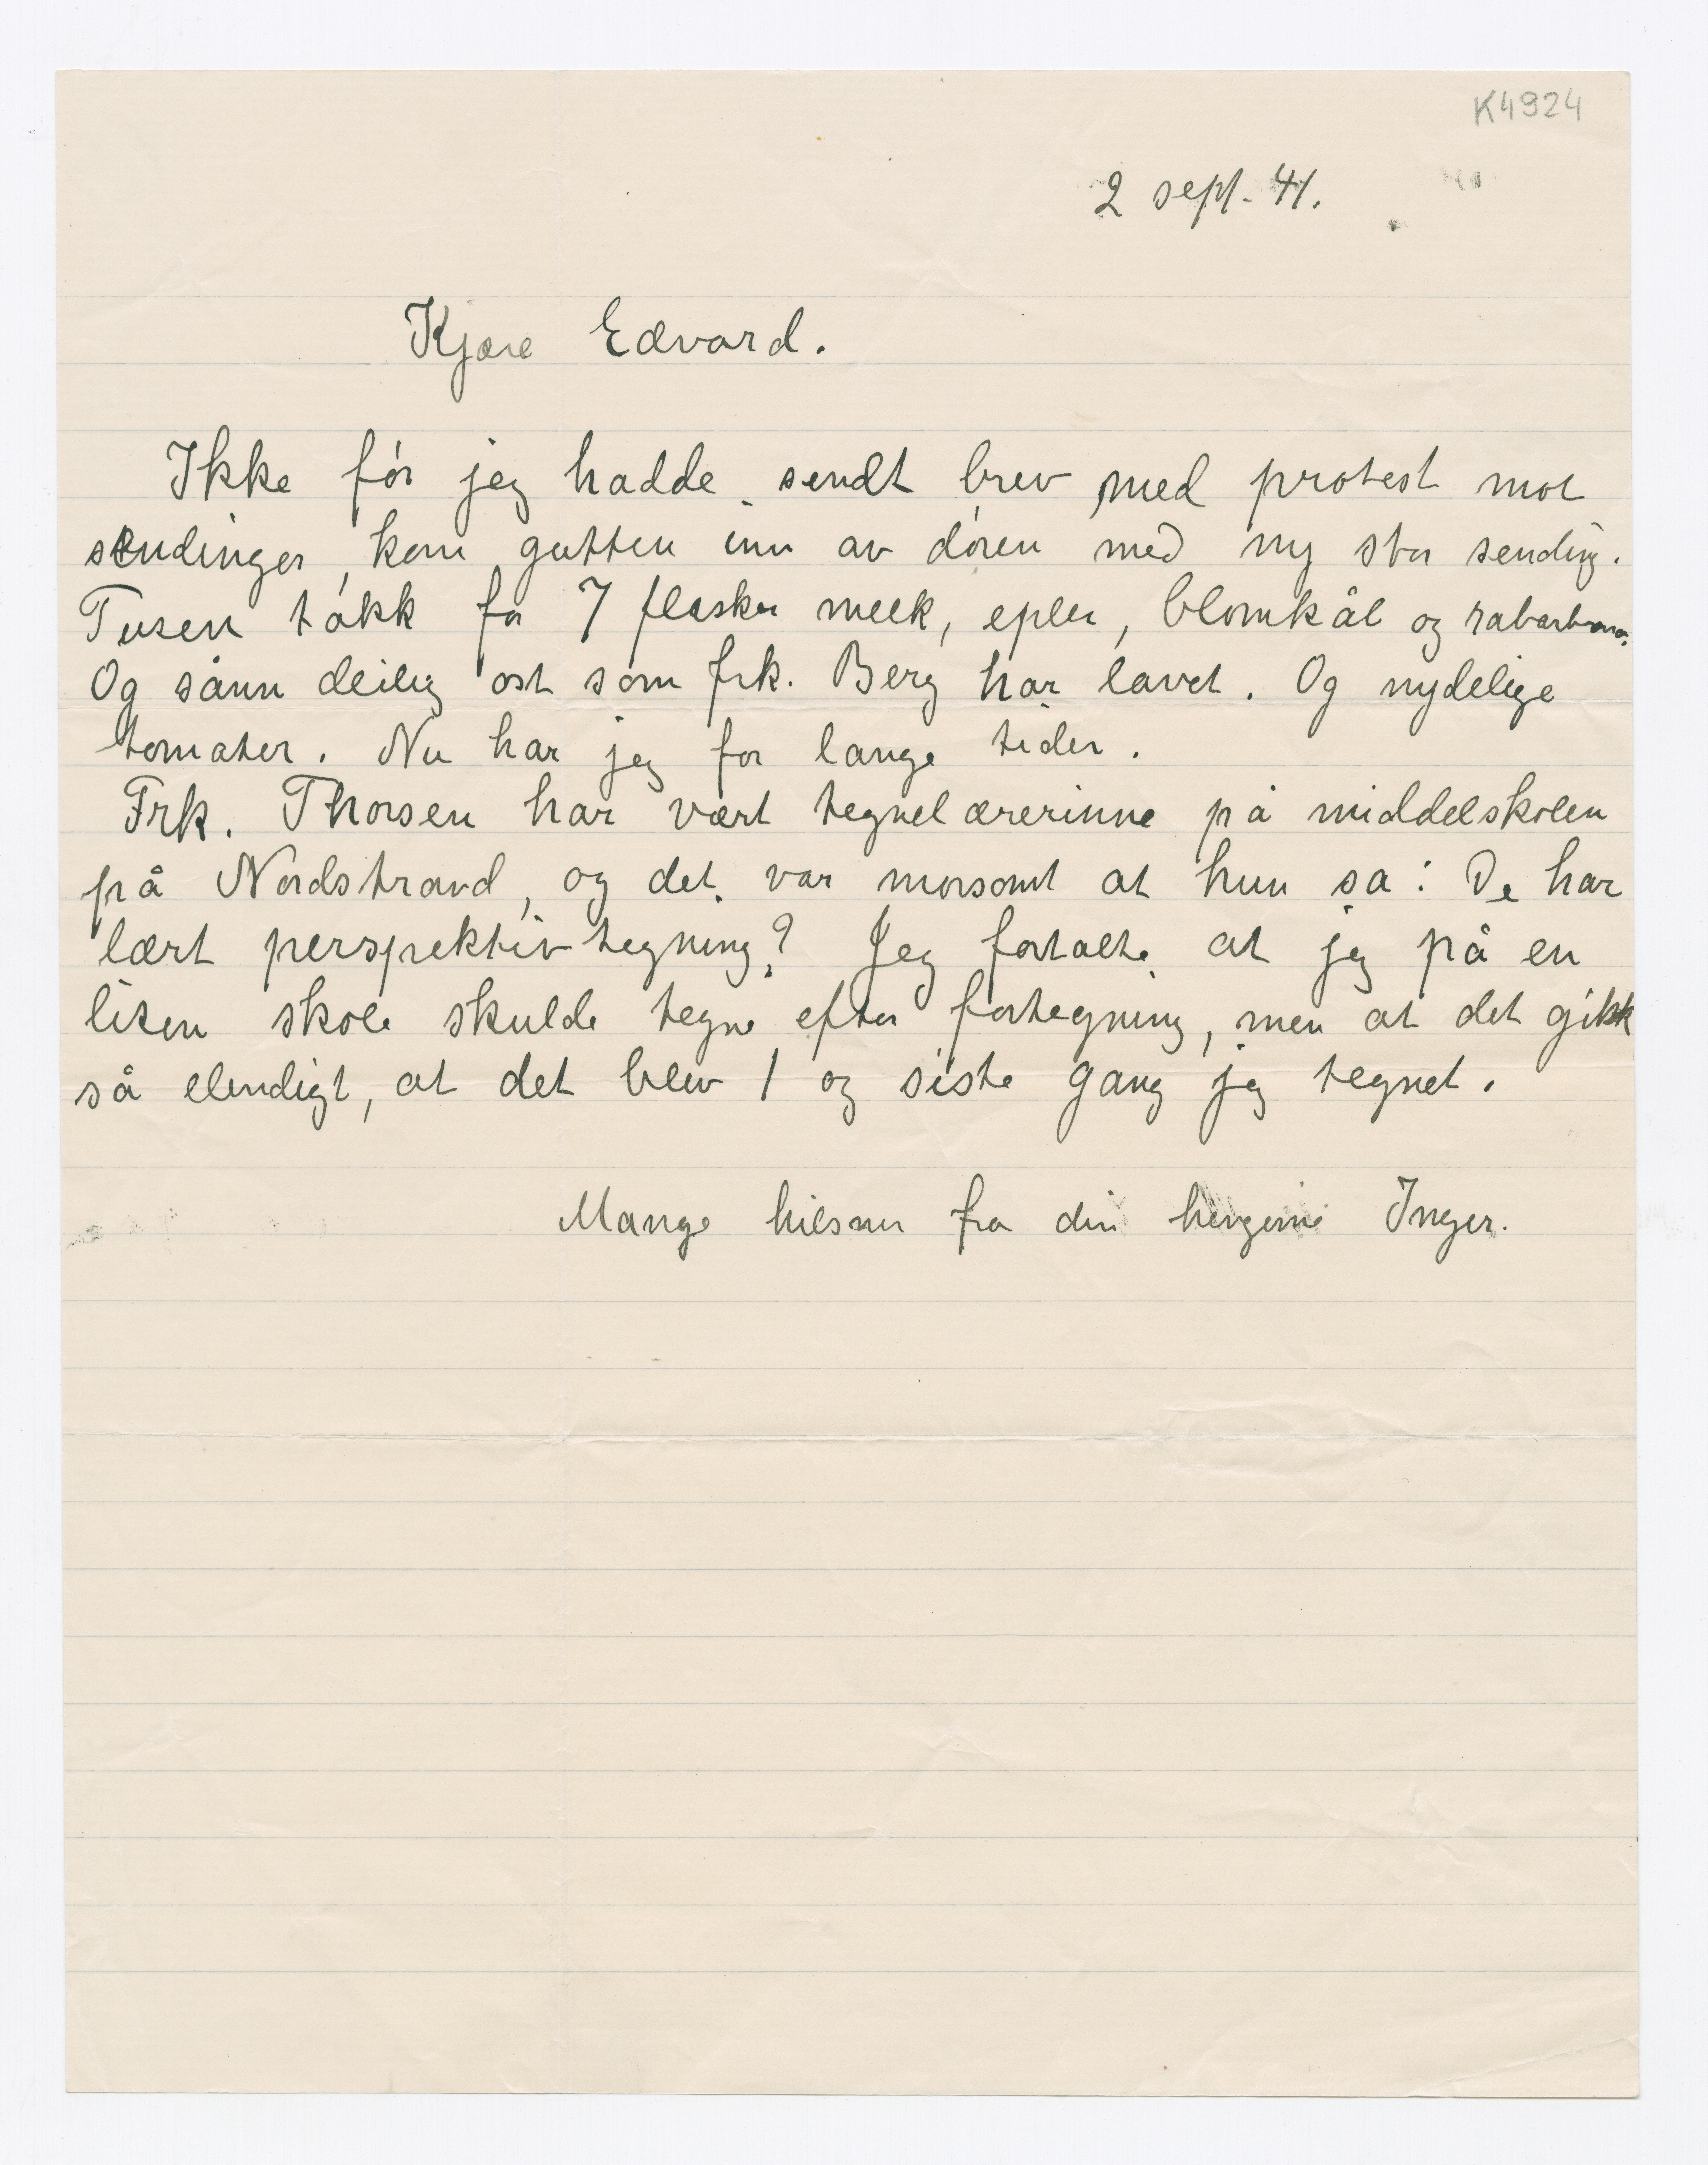 K4924
2 sept. 41.
Kjære Edvard.
Ikke før jeg hadde sendt brev med protest mot
sendinger, kom gutten inn av døren med ny stor sending.
Tusen takk for 7 flasker melk, epler, blomkål og rabarbra.
Og sånn deilig ost som frk. Berg har lavet. Og nydelige
tomater. Nu har jeg for lange tider.
Frk. Thorsen har vært tegnelærerinne på middelskolen
på Nordstrand, og det var morsomt at hun sa: De har
lært perspektivtegning? Jeg fortalte at jeg på en
liten skole skulde tegne efter fortegning, men at det gikk
så elendigt, at det blev 1 og siste gang jeg tegnet.
Mange hilsner fra din hengivne Inger.